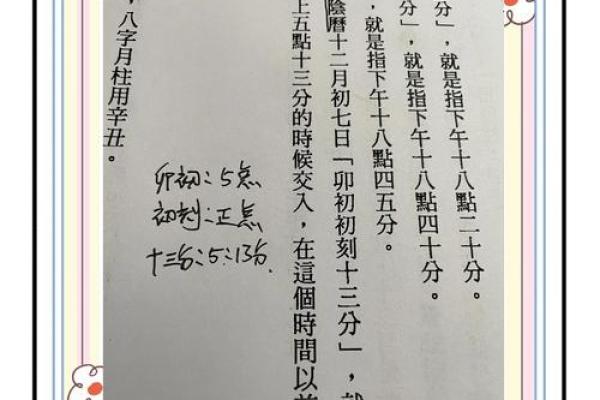 分」，就是指下午十八點二十分。
分」，就是指下午十八點四十分。
，就是指下午十八點四五分。
陰曆十二月初七日「卯初初刻十三分」，就
上五點十三分的時候交入，在這個時間以前
，八字月柱用辛丑。
卯初：5点
初刻：正点
十三分：5：13分.